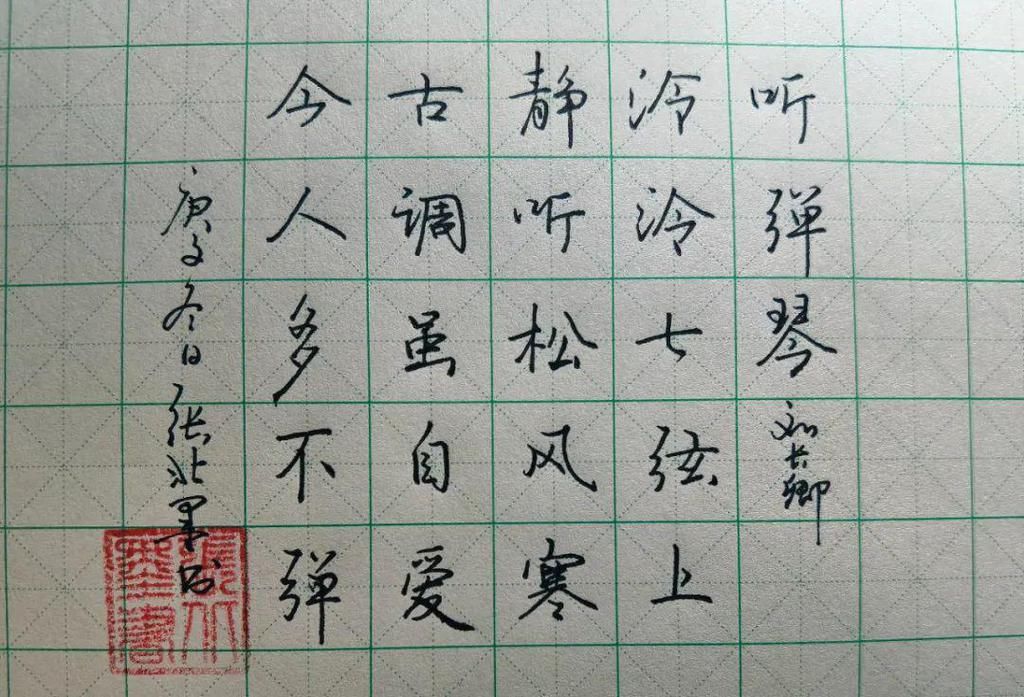 听弹琴 刘长卿
泠泠七弦上
静听松风寒
古调虽自爱
今人多不弹
庚子冬日张北墨书